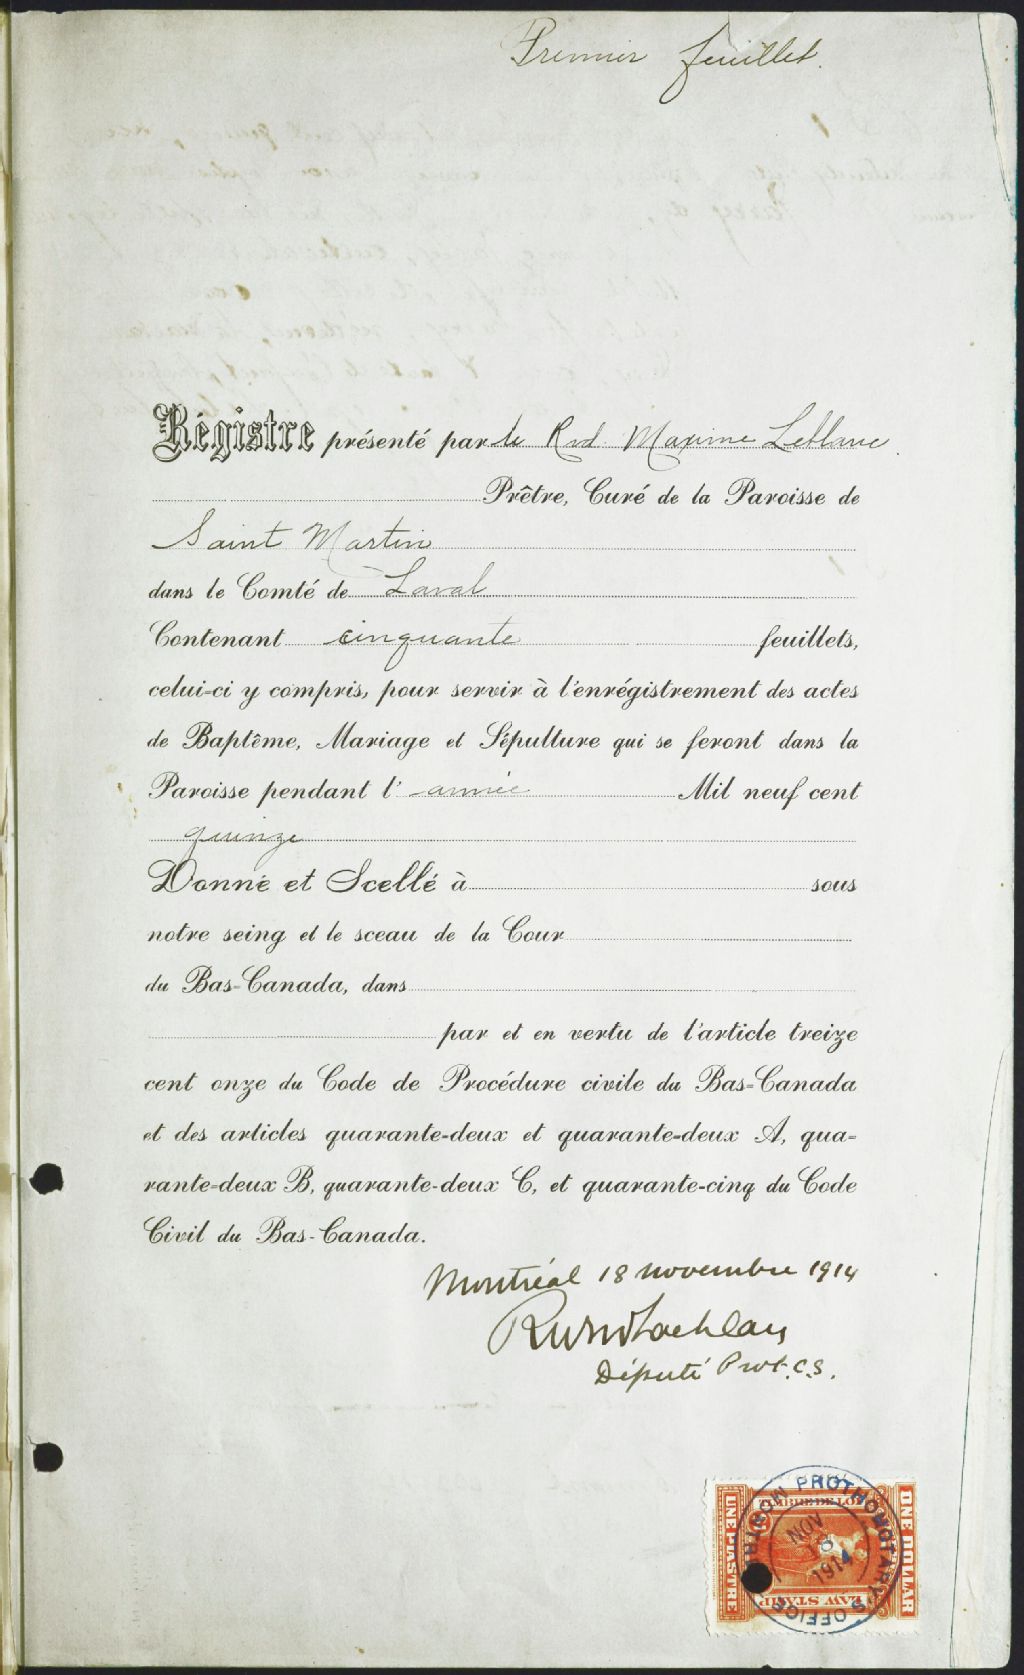 Premier feuillet.
Régistre présenté par le Rvd. Maxime Leblanc
Prêtre, Curé de la Paroisse de
Saint Martin
dans le Comté de Laval
Contenant cinquante feuillets,
celui-ci y compris, pour servir à l'enrégistrement des actes
de Baptême, Mariage et Sépulture qui se feront dans la
Paroisse pendant l'année Mil neuf cent
quinze
Donné et Scellé à sous
notre seing et le sceau de la Cour
du Bas-Canada, dans
par et en vertu de l'article treize
cent onze du Code de Procédure civile du Bas-Canada
et des articles quarante-deux et quarante-deux A, qua-
rante-deux B, quarante-deux C, et quarante-cinq du Code
Civil du Bas-Canada.
Montréal 18 novembre 1914
Député Prot. C.S.
PROTHONOTARY'S OFFICE
NOV
18
1914
UNE PIASTRE
TIMBRE DE LOI
LAW STAMP
ONE DOLLAR